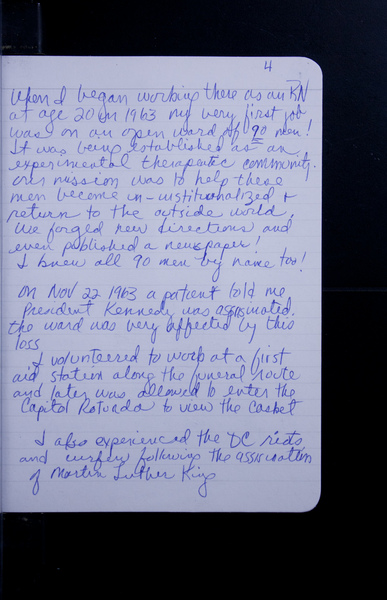 4
When I began working there as an RN
at age 20 in 1963 my very first job
was on an open ward of 90 men!
It was being established as an
experimental therapeutic community.
Our mission was to help these
men become un-institutionalized +
return to the outside world.
We forged new directions and
even published a newspaper!
I knew all 90 men by name too!
On Nov 22 1963 a patient told me
President Kennedy was assassinated.
the ward was very affected by this
loss
I volunteered to work at a first
aid station along the funeral route
and later was allowed to enter the
Capitol Rotunda to view the casket
I also experienced the DC riots
and curfew following the assassination
of Martin Luther King